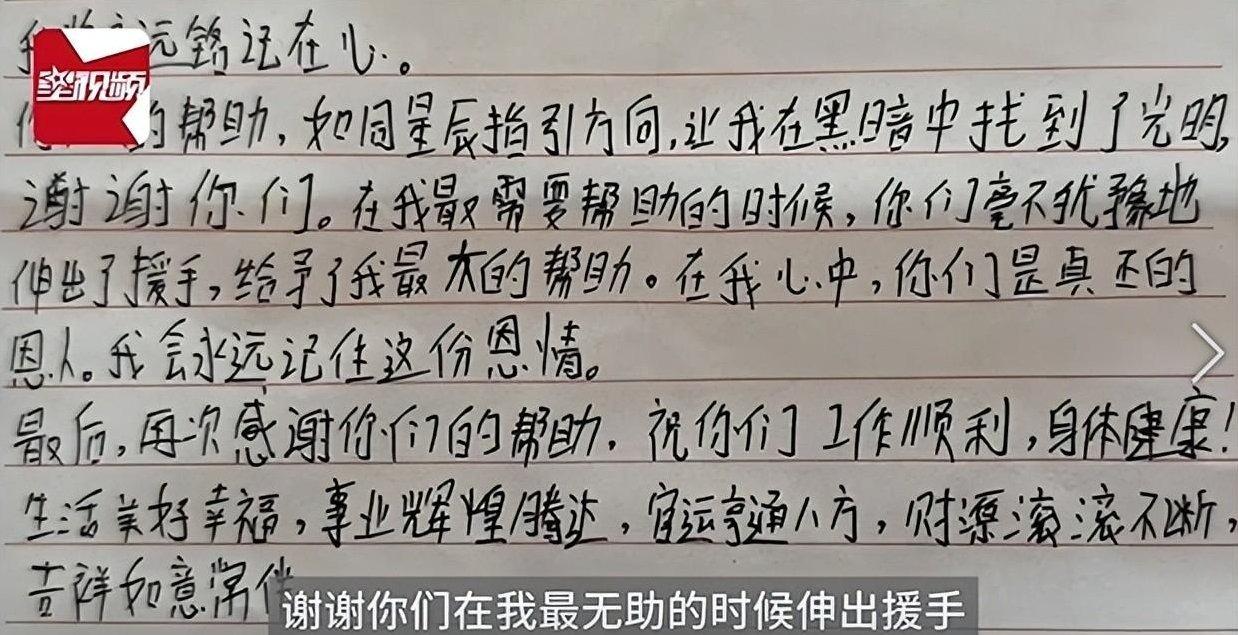 远铭记在心。
视频
的帮助，如同星辰指引方向，让我在黑暗中找到了光明，
谢谢你们。在我最需要帮助的时候，你们毫不犹豫地
伸出了援手，给予了我最大的帮助。在我心中，你们是真正的
恩人。我会永远记住这份恩情。
最后，再次感谢你们的帮助．祝你们工作顺利，身体健康！
生活美好幸福，事业辉煌腾达，官运亨通八方，财源滚滚不断，
吉祥如意常伴
谢谢你们在我最无助的时候伸出援手